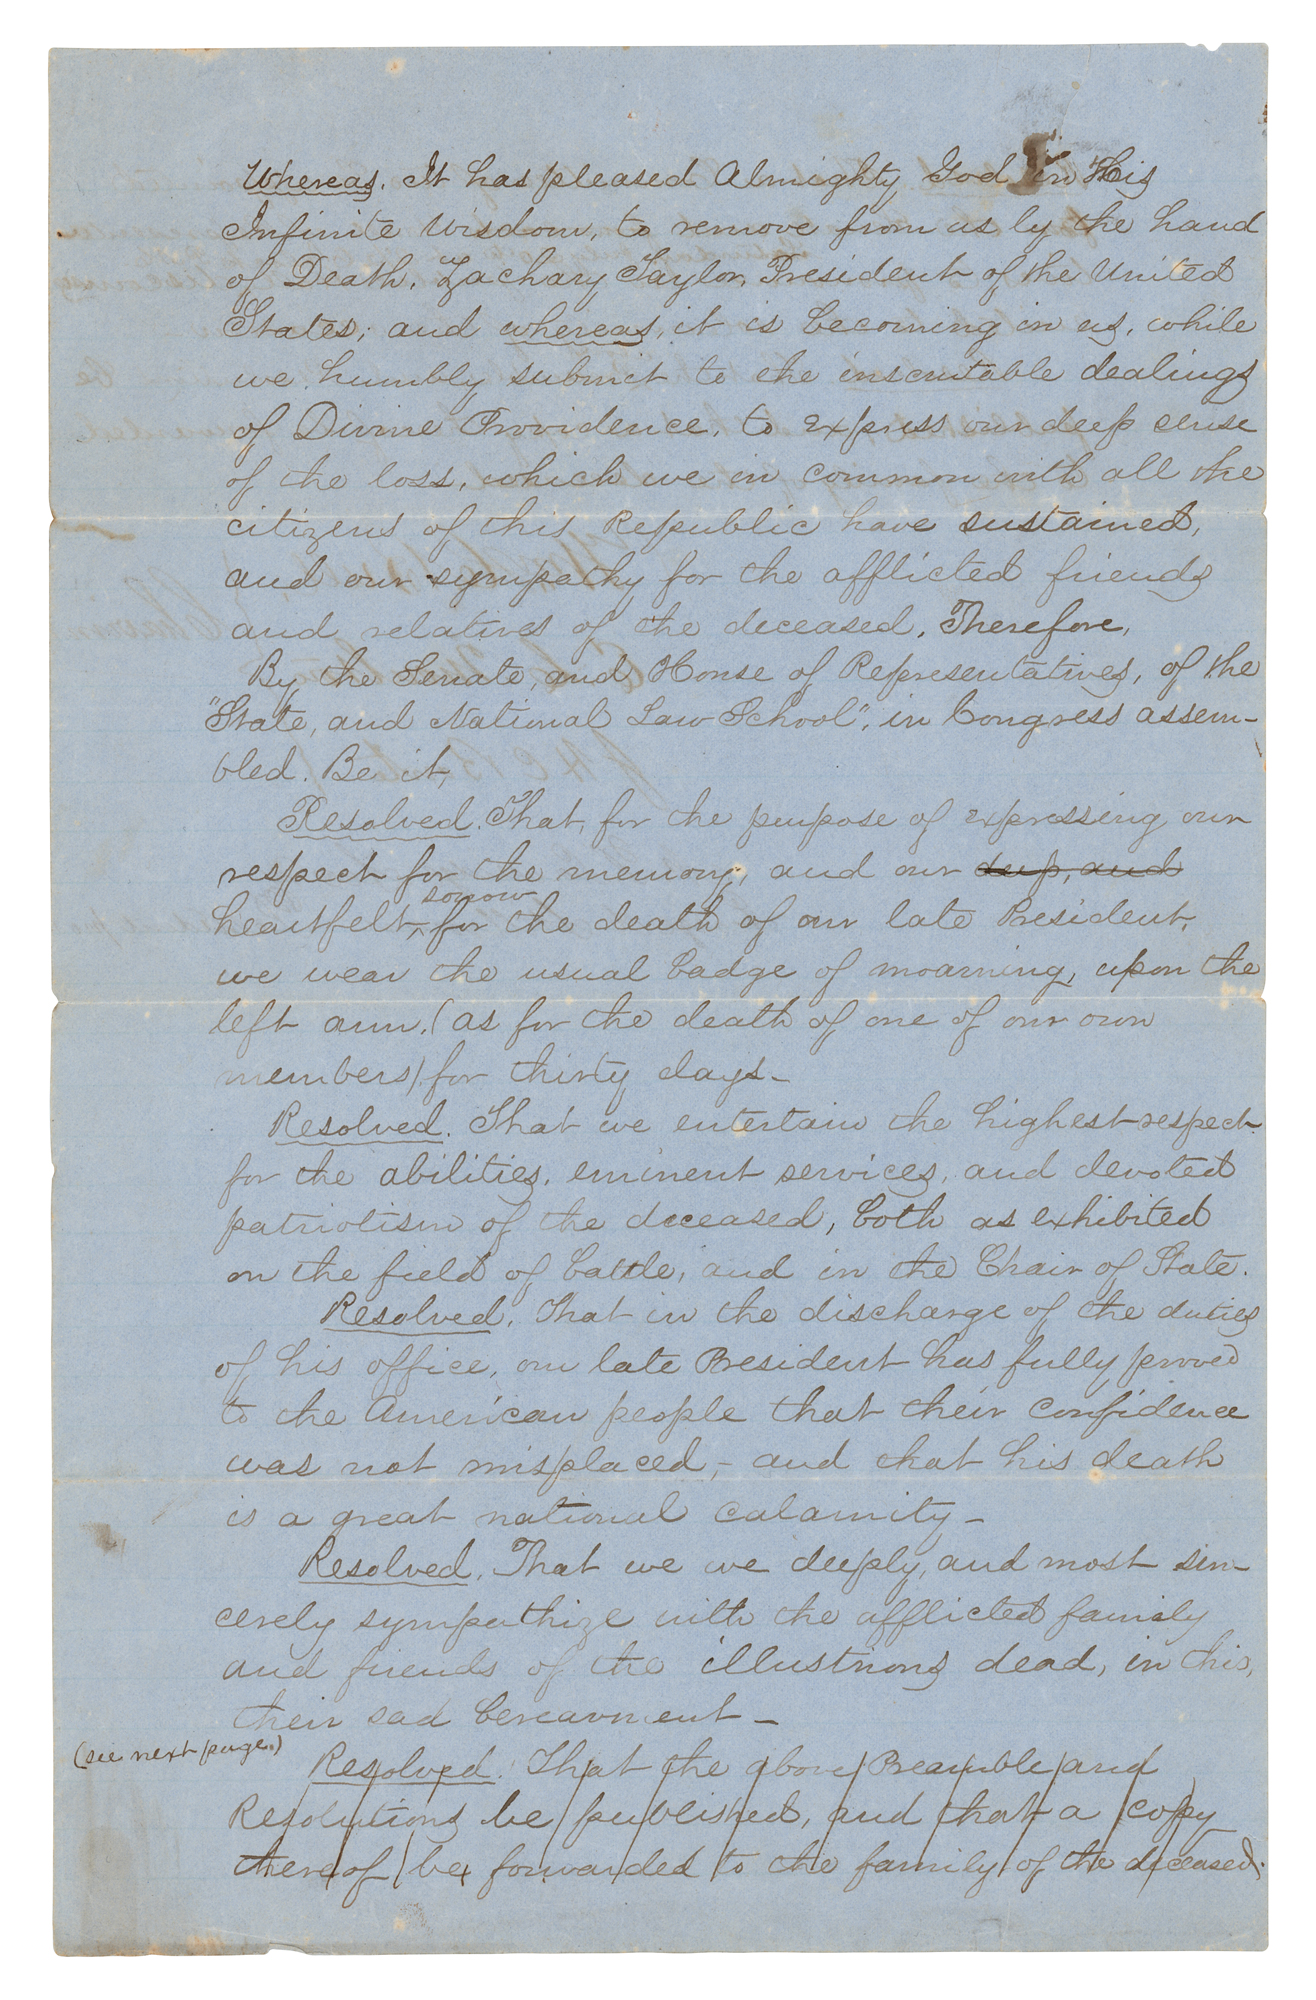 Whereas. It has pleased Almighty God in His
Infinite Wisdom, to remove from us by the hand
of Death, Zachary Taylor, President of the United
States; and whereas, it is becoming in us, while
we humbly submit to the inscrutable dealings
of Divine Providence, to express our deep sense
of the loss, which we in common with all the
citizens of this Republic have sustained,
and our sympathy for the afflicted friends
and relatives of the deceased, Therefore,
By the Senate, and House of Representatives, of the
"State, and National Law School", in Congress assem-
bled. Be it,
Resolved. That, for the purpose of expressing our
respect for the memory, and our deep, and
sorrow
heartfelt, for the death of our late President,
we wear the usual badge of moarning, upon the
left arm, (as for the death of one of our own
members) for thirty days-
Resolved. That we entertain the highest respect
for the abilities, eminent services, and devoted
patriotism of the deceased, both as exhibited
on the field of battle, and in the Chair of State.
Resolved. That in the discharge of the duties
of his office, our late President has fully proved
to the American people that their confidence
was not misplaced,- and that his death
is a great national calamity-
Resolved. That we we deeply, and most sin-
cerely sympathize with the afflicted family
and friends of the illustrious dead, in this,
their sad bereavment-
(see next page.)
Resolved. That the above Preamble and
Resolutions be published, and that a copy
thereof be forwarded to the family of the deceased.